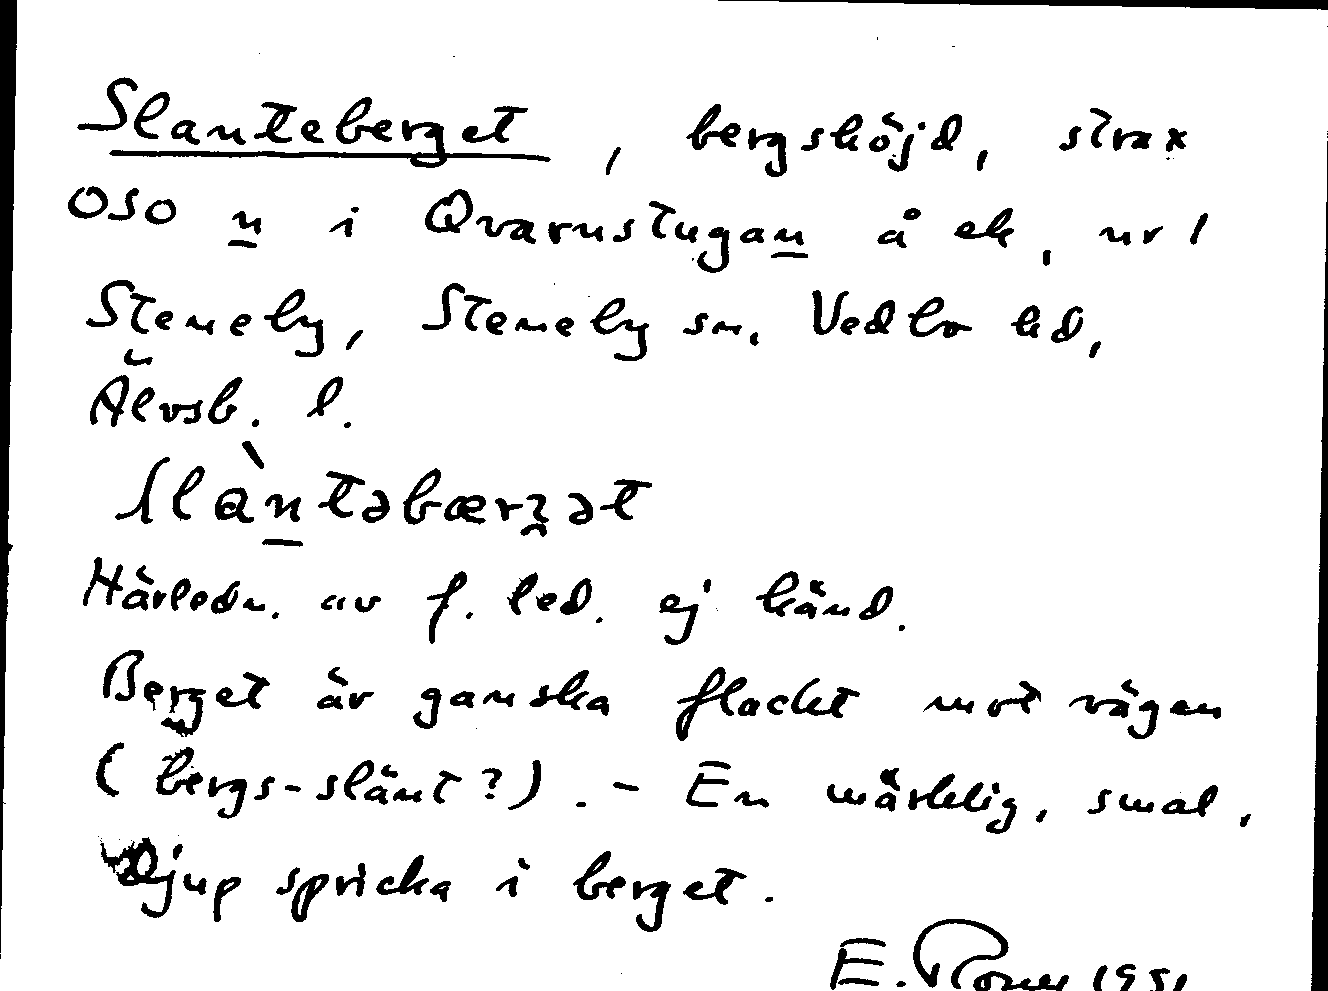 Slanteberget, bergshöjd, strax
OSO n i Qvarnstugan å ek, nr 1
Steneby, Steneby sn. Vedbo hd,
Älvsb. l.
slàntəbærgət
Härledn. av f. led. ej känd.
Berget är ganska flackt mot vägen
(bergs-slänt?). - En märklig, smal,
djup spricka i berget.
E. 1951